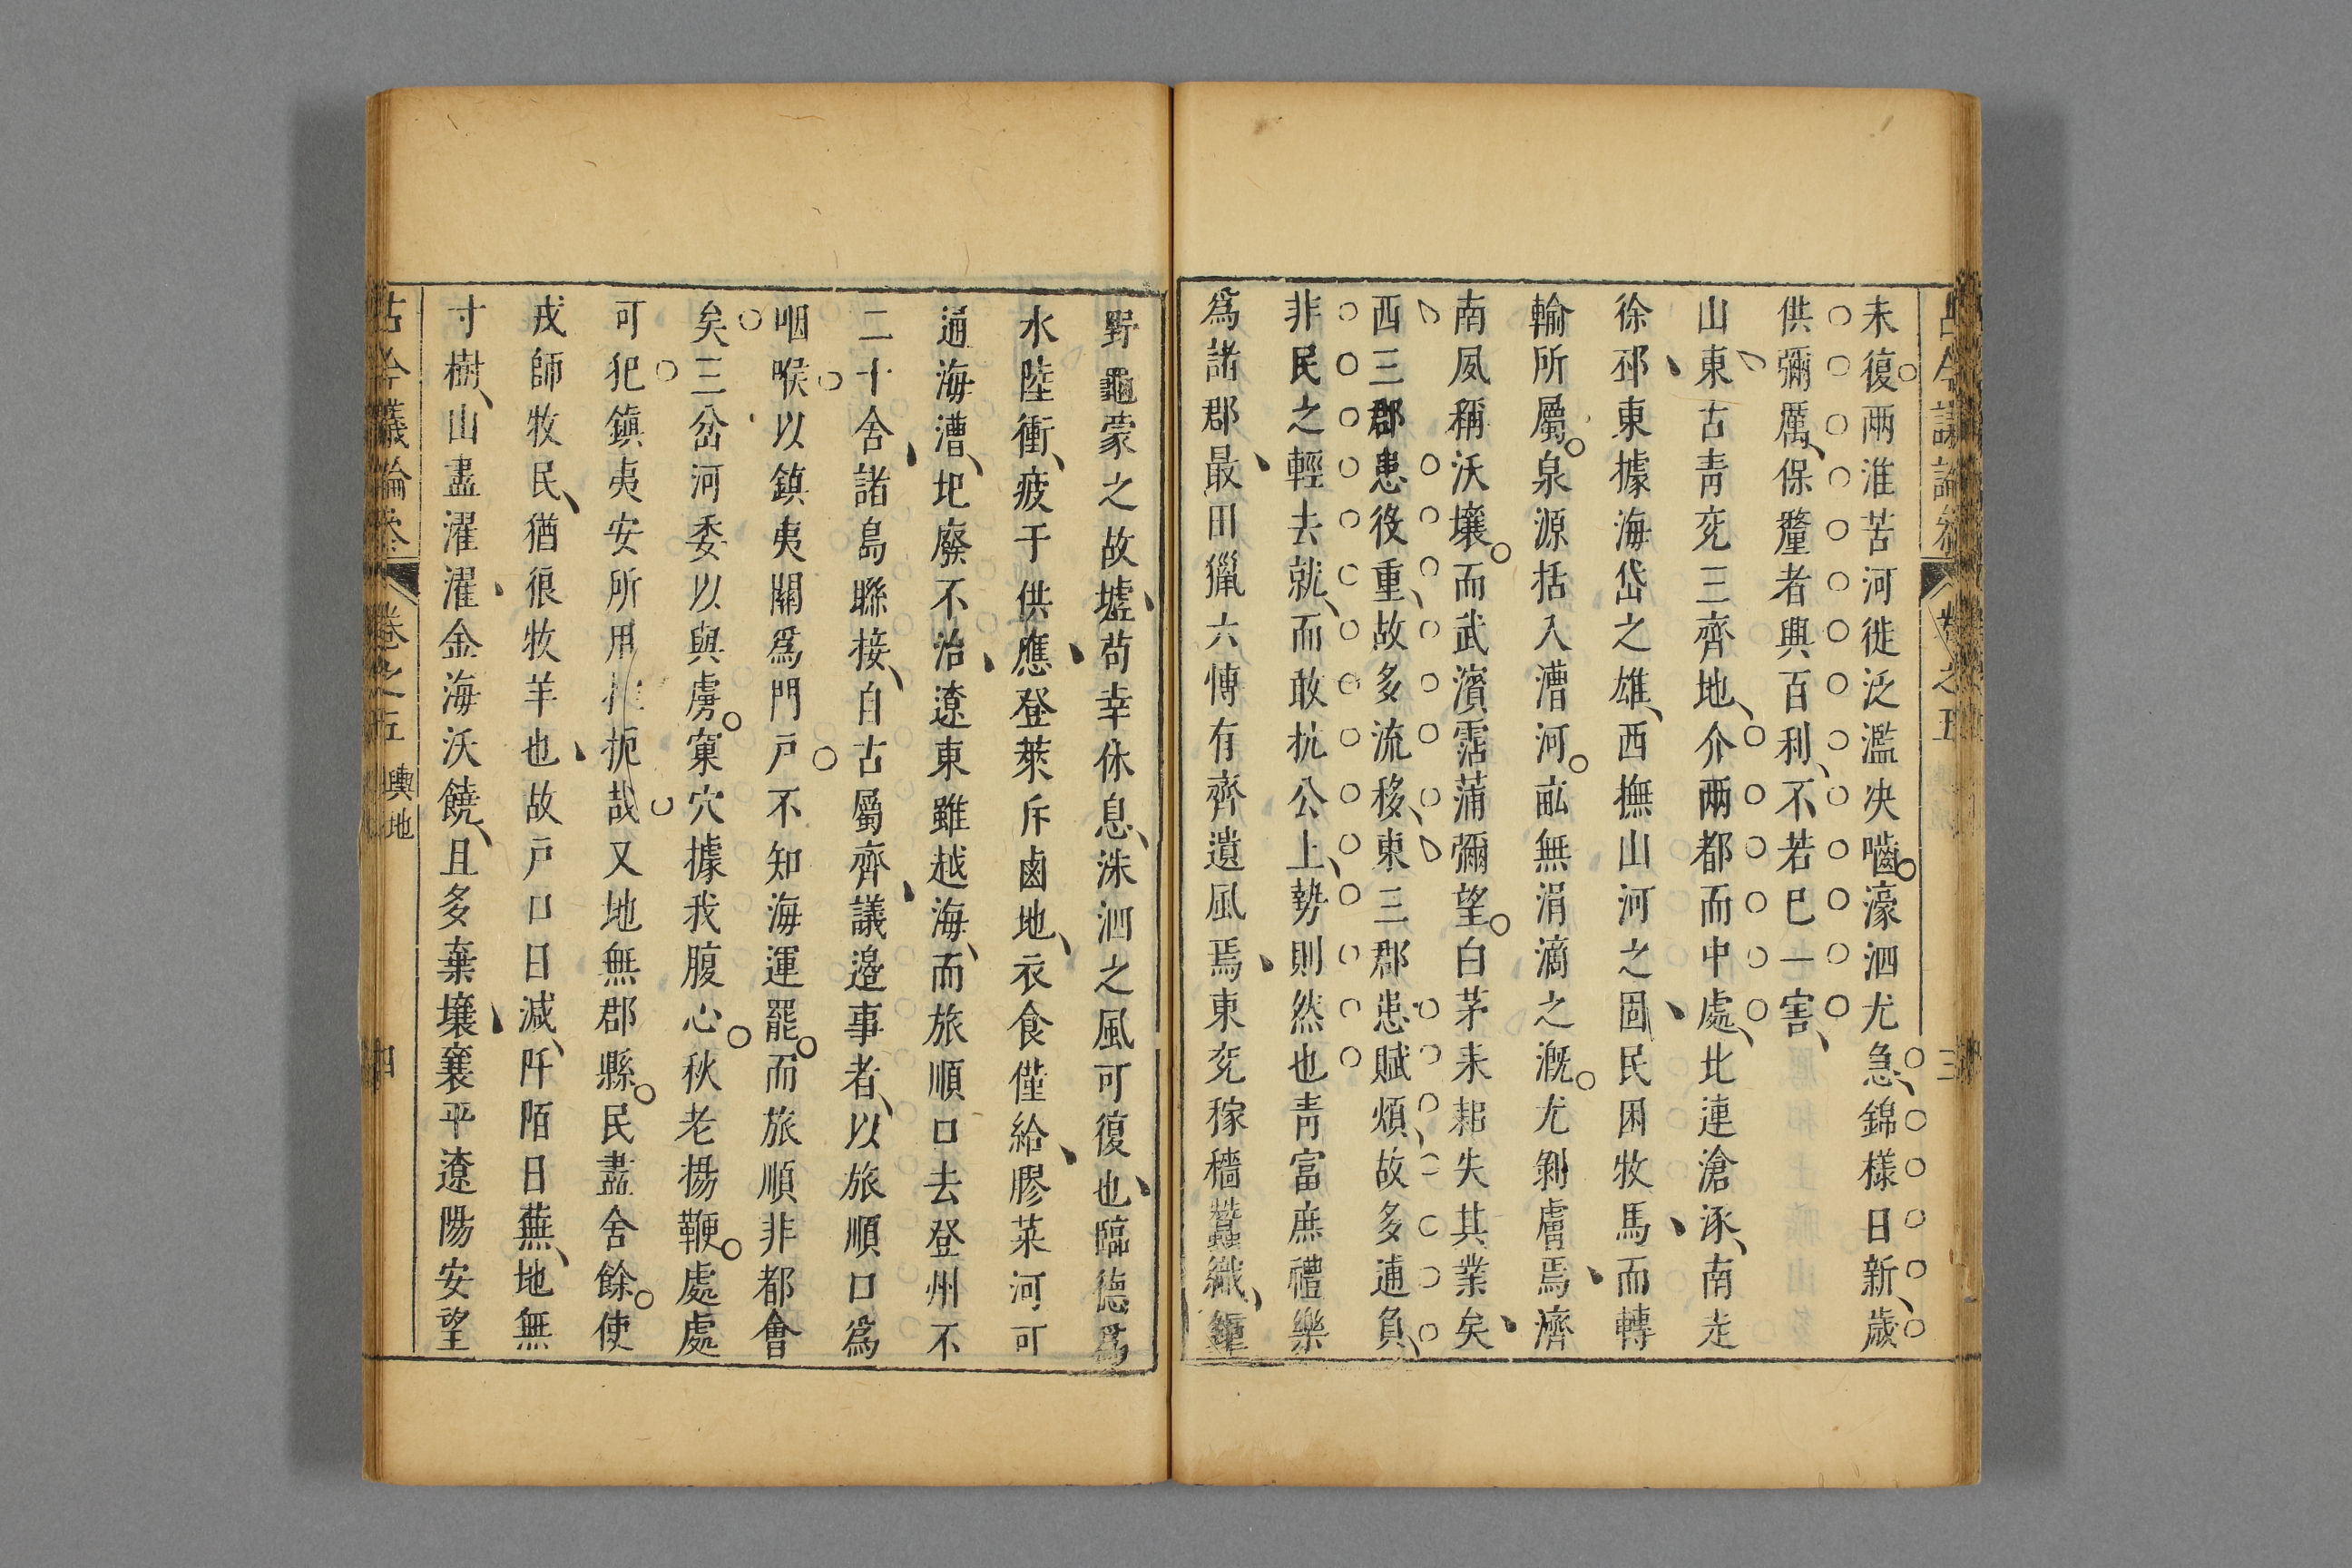 古今議論參 卷之五 三
未復兩淮苦河徙泛濫決嚙濠泗尤急錦樣日新歲
供彌厲保釐者興百利不若已一害
山東古青兖三齊地介兩都而中處北連滄涿南走
徐邳東據海岱之雄西撫山河之固民困牧馬而轉
輸所屬泉源括入漕河畆無涓滴之溉尤剝膚焉濟
南夙稱沃壤而武濱霑蒲彌望白茅耒耜失其業矣
西三郡患役重故多流移東三郡患賦煩故多逋負
非民之輕去就而敢抗公上勢則然也青富庶禮樂
爲諸郡最田獵六愽有齊遺風焉東兖稼穡蠶織鍾
野龜蒙之故墟苟幸休息洙泗之風可復也臨德爲
水陸衝疲于供應登萊斥鹵地衣食僅給膠萊河可
通海漕圯廢不治遼東雖越海而旅順口去登州不
二十舍諸島聯接自古屬齊議邉事者以旅順口爲
咽喉以鎮夷關爲門戸不知海運罷而旅順非都會
矣三岔河委以與虜窠穴據我腹心秋老揚鞭處處
可犯鎮夷安所用扼哉又地無郡縣民盡舍餘使
戎師牧民猶很牧羊也故戸口日减阡陌日蕪地無
寸樹山盡濯濯金海沃饒且多棄壤襄平遼陽安望
古今議論參 卷之五 輿地 四